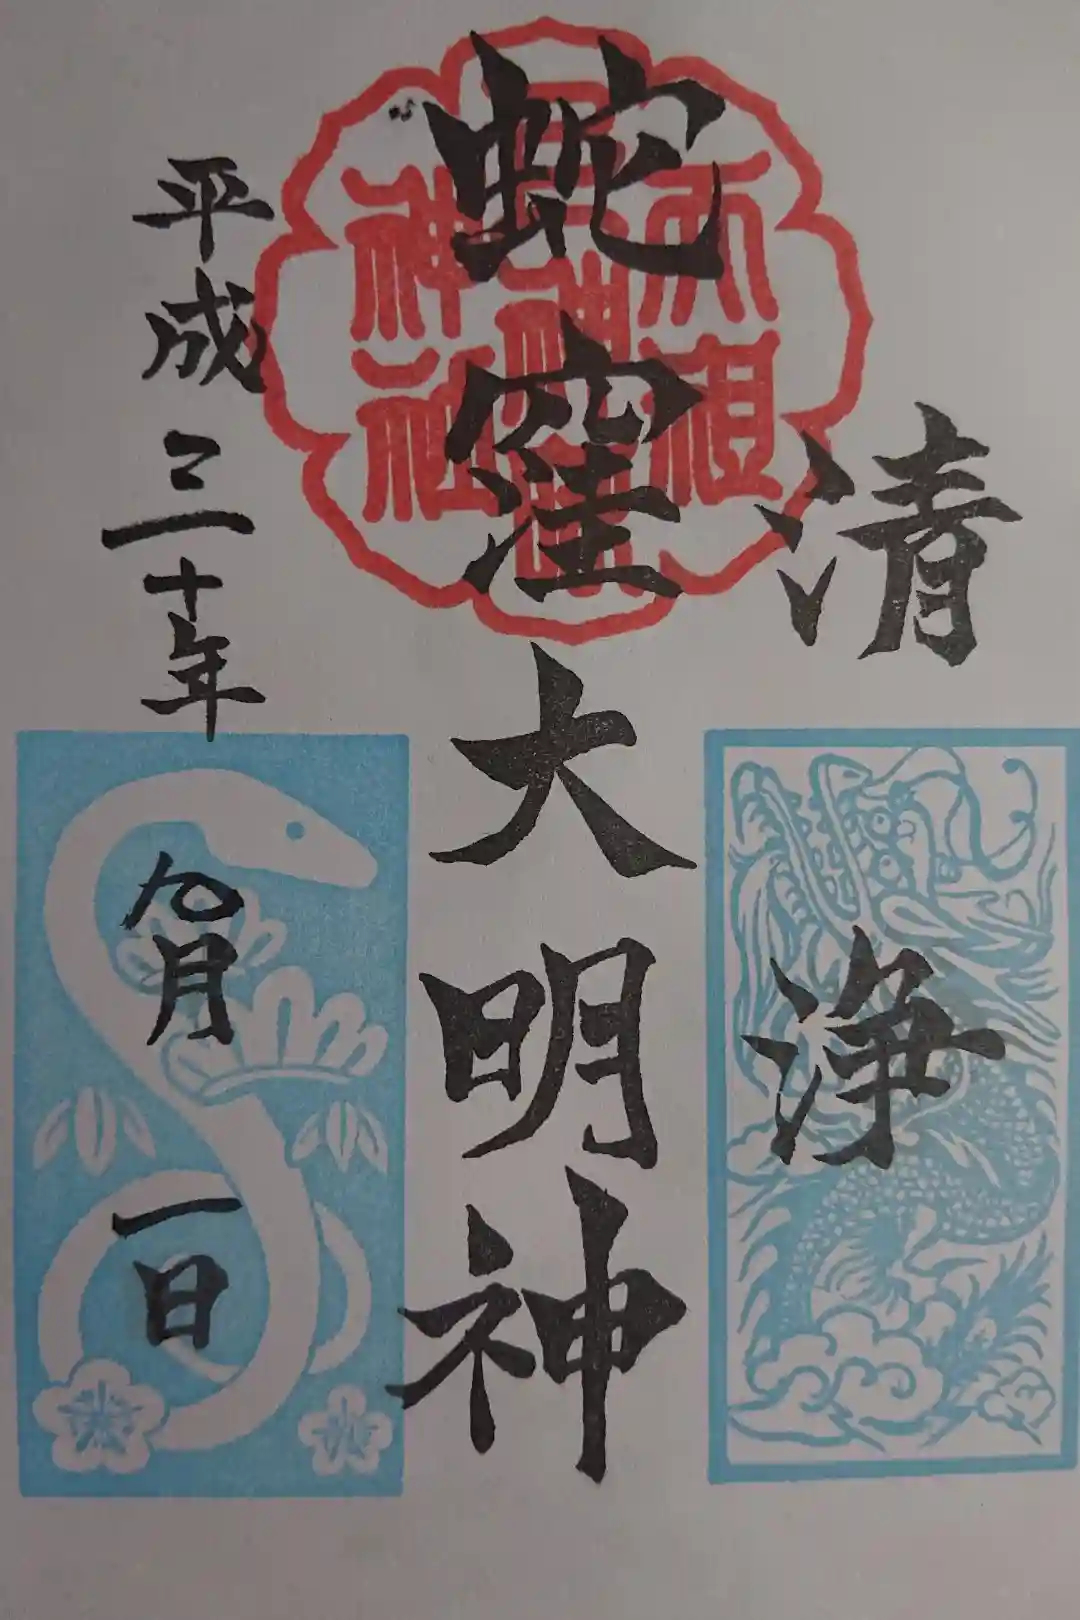 清浄
蛇窪大明神
平成三十年九月一日
天祖
神社